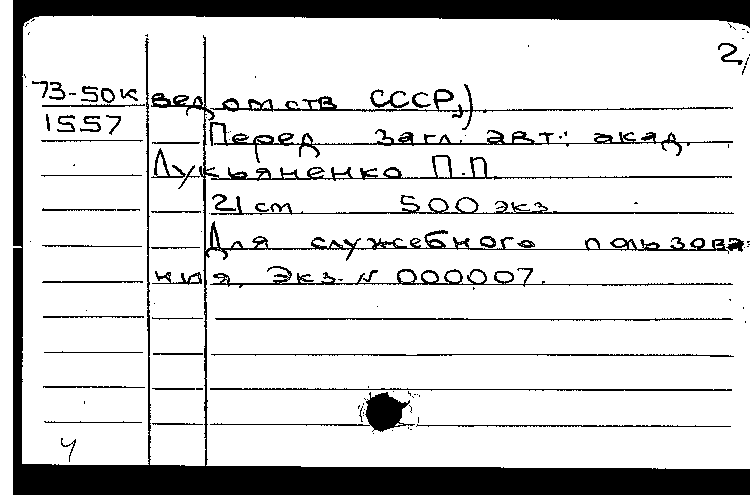 2
73-50к ведомств СССР,).
1557 Перед загл. авт.: акад.
Лукьяненко П.П.
21 см. 500 экз.
Для служебного пользова-
ния. Экз. N 000007.
4